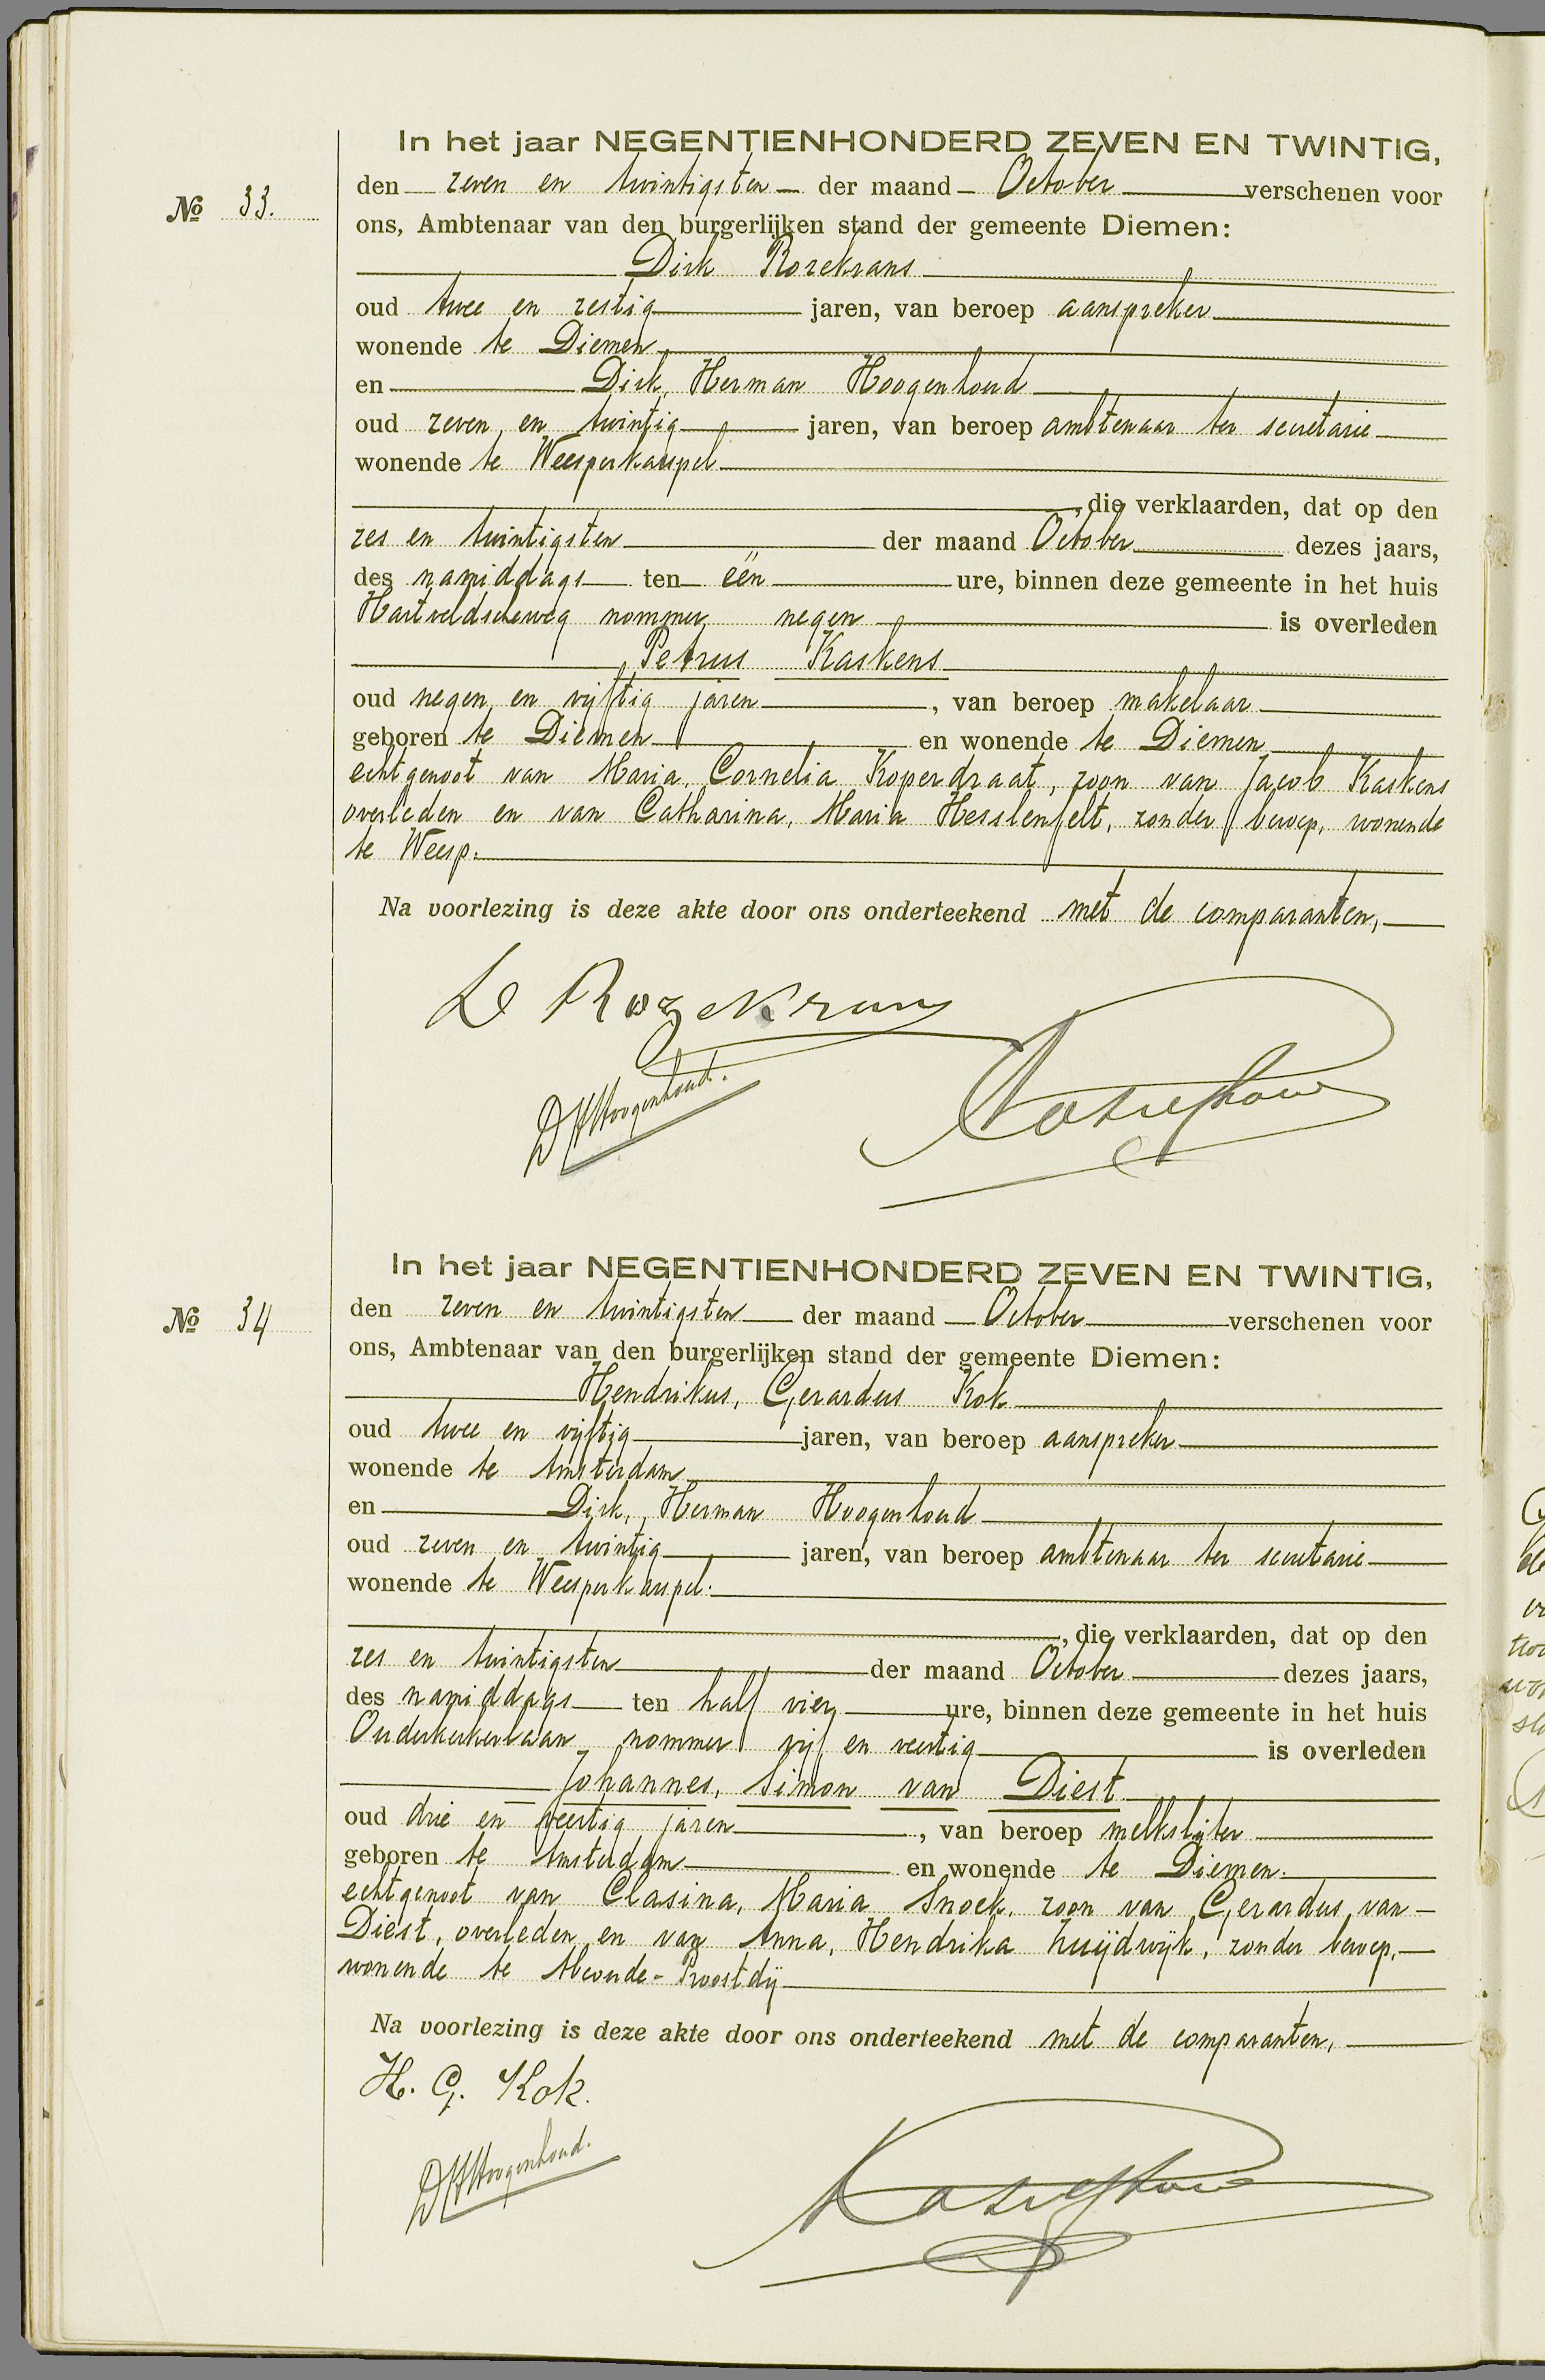 In het jaar NEGENTIENHONDERD ZEVEN EN TWINTIG,
№ 33.
den zeven en twintigsten der maand October verschenen voor
ons, Ambtenaar van den burgerlijken stand der gemeente Diemen:
Dirk Rozekrans
oud twee en zestig jaren, van beroep aanspreker
wonende te Diemen
en Dirk, Herman Hoogenhoud
oud zeven en twintig jaren, van beroep ambtenaar ter secretarie
wonende te Weesperkarspel
, die verklaarden, dat op den
zes en twintigsten der maand October dezes jaars,
des namiddags ten één ure, binnen deze gemeente in het huis
Hartveldscheweg nommer negen is overleden
Petrus Kaskens
oud negen en vijftig jaren, van beroep makelaar
geboren te Diemen en wonende te Diemen
echtgenoot van Maria, Cornelia Koperdraat, zoon van Jacob Kaskens
overleden en van Catharina, Maria Hesslenfelt, zonder beroep, wonende
te Weesp.
Na voorlezing is deze akte door ons onderteekend met de comparanten,
D Rozekrans
DHHoogenhoud.
In het jaar NEGENTIENHONDERD ZEVEN EN TWINTIG,
№ 34
den zeven en twintigsten der maand October verschenen voor
ons, Ambtenaar van den burgerlijken stand der gemeente Diemen:
Hendrikus, Gerardus Kok
oud twee en vijftig jaren, van beroep aanspreker
wonende te Amsterdam
en Dirk, Herman Hoogenhoud
oud zeven en twintig jaren, van beroep ambtenaar ter secretarie
wonende te Weesperkarspel.
, die verklaarden, dat op den
zes en twintigsten der maand October dezes jaars,
des namiddags ten half vier ure, binnen deze gemeente in het huis
Ouderkerkerlaan nommer vijf en veertig is overleden
Johannes, Simon van Diest
oud drie en veertig jaren, van beroep melkslijter
geboren te Amsterdam en wonende te Diemen.
echtgenoot van Clasina, Maria Snoek, zoon van Gerardus van
Diest, overleden en van Anna, Hendrika Zuijdwijk, zonder beroep,
wonende te Abcoude-Proostdij
Na voorlezing is deze akte door ons onderteekend met de comparanten,
H. G. Kok.
DHHoogenhoud.